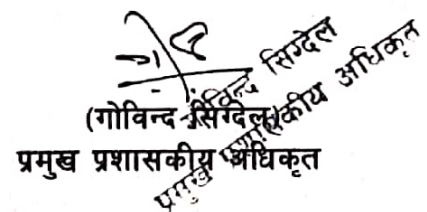 (गोविन्द सिग्देल)
प्रमुख प्रशासकीय अधिकृत
गोविन्द सिग्देल
प्रमुख प्रशासकीय अधिकृत